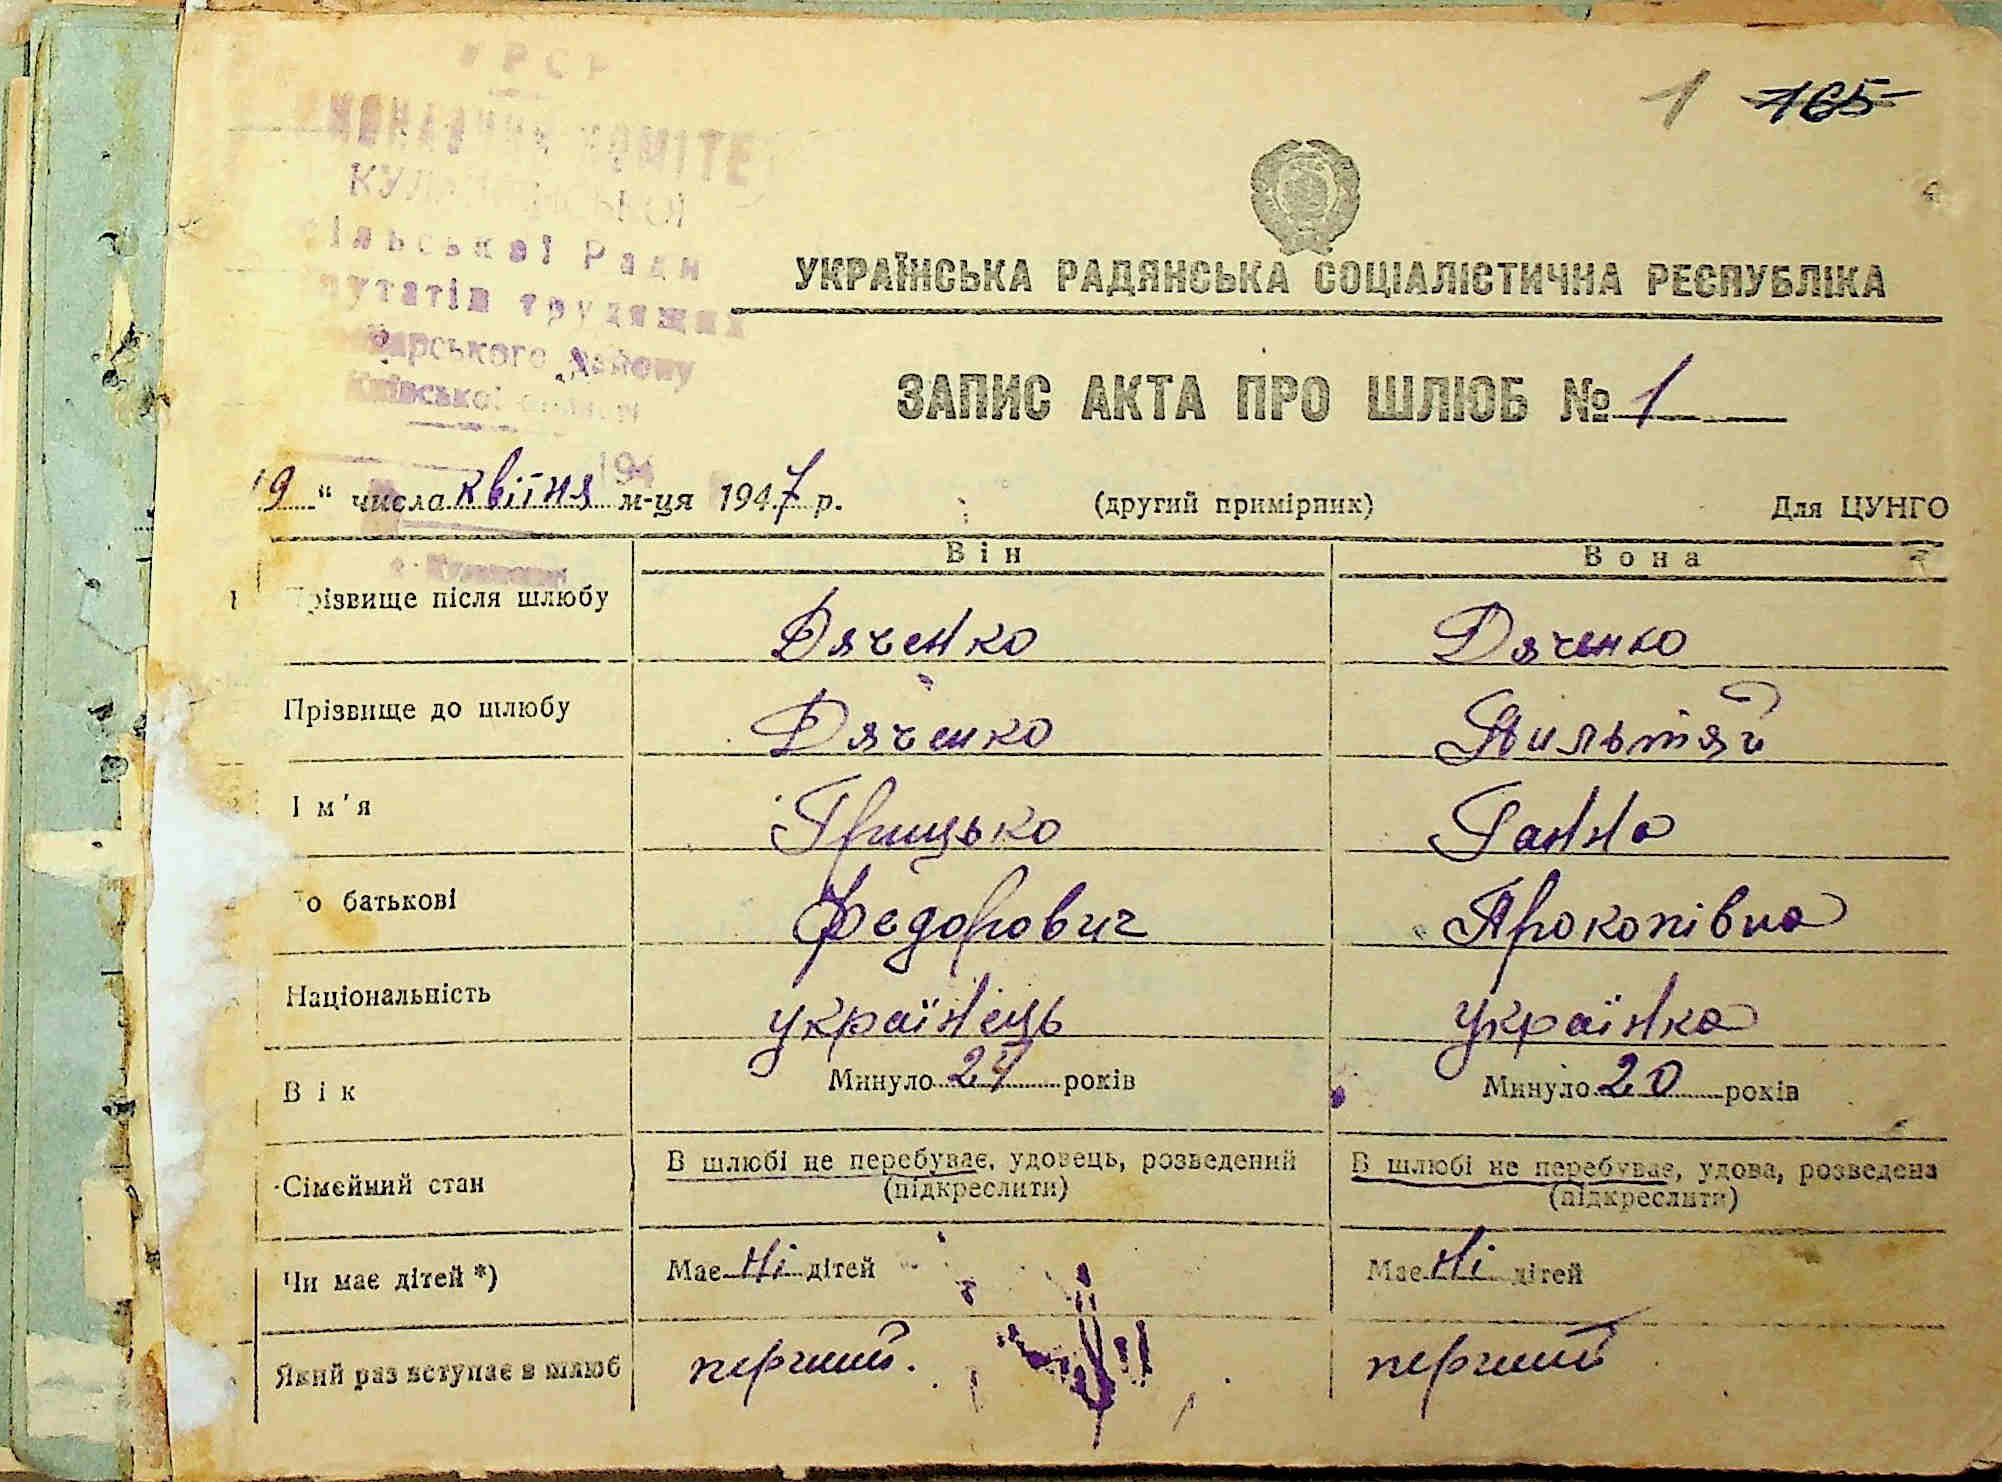 1 165
КОМІТЕ
сільської Ради
путатів трудящих
ирського району
Київської області
УКРАЇНСЬКА РАДЯНСЬКА СОЦІАЛІСТИЧНА РЕСПУБЛІКА
ЗАПИС АКТА ПРО ШЛЮБ № 1
"9" числа квітня м-ця 1947 р. (другий примірник) Для ЦУНГО
Він Вона
1 Прізвище після шлюбу Дяченко Дяченко
Прізвище до шлюбу Дяченко
Ім'я Грицько Ганна
По батькові Федорович Прокопівна
Національність українець українка
Вік Минуло 24 років Минуло 20 років
Сімейний стан В шлюбі не перебуває, удовець, розведений В шлюбі не перебуває, удова, розведена
(підкреслити) (підкреслити)
Чи має дітей *) Має ні дітей Має ні дітей
Який раз вступає в шлюб перший. перший